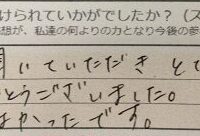 けられていかがでしたか？（ス
想が、私達の何よりの力となり今後の参
聞いていただき と
とうございました。
よかったです。